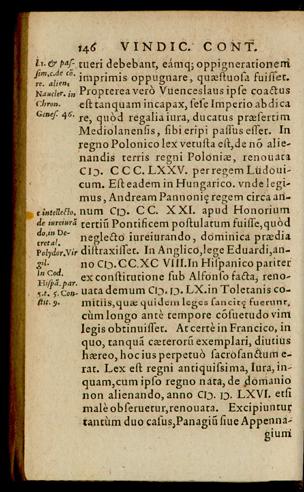 146 VINDIC. CONT.
l.1. & pas-
sim, c. de cō.
re. alien.
Naucler. in
Chron.
Genes. 46.
tueri debebant, eámq; oppignerationem
imprimis oppugnare, quæstuosa fuisset.
Propterea verò Vuenceslaus ipse coactus
est tanquam incapax, sese Imperio abdica
re, quòd regalia iura, ducatus præsertim
Mediolanensis, sibi eripi passus esset. In
regno Polonico lex vetusta est, de nō alie-
nandis terris regni Poloniæ, renouata
CIↃ. CCC LXXV. per regem Ludoui-
cum. Est eadem in Hungarico. vnde legi-
mus, Andream Pannonię regem circa an-
num CIↃ. CC. XXI. apud Honorium
tertiū Pontificem postulatum fuisse, quòd
neglecto iureiurando, dominica prædia
distraxisset. In Anglico, lege Eduardi, an-
no CIↃ. CC.XC VIII. In Hispanico pariter
ex constitutione sub Alfonso facta, reno-
uata demum CIↃ. IↃ. LX. in Toletanis co-
mitiis, quæ quidem leges sancitę fuerunt,
cùm longo antè tempore cōsuetudo vim
legis obtinuisset. At certè in Francico, in
quo, tanquā cæterorū exemplari, diutius
hæreo, hoc ius perpetuò sacrosanctum e-
rat. Lex est regni antiquissima, Iura, in-
quam, cum ipso regno nata, de domanio
non alienando, anno CIↃ. IↃ. LXVI. etsi
malè obseruetur, renouata. Excipiuntur
tantùm duo casus, Panagiū siue Appenna-
giumi
c intellecto,
de iureiurā
do, in De-
cretal.
Polydor. Vir
gil.
In Cod.
Hispā. par.
5. t. 5. Con-
stit. 9.